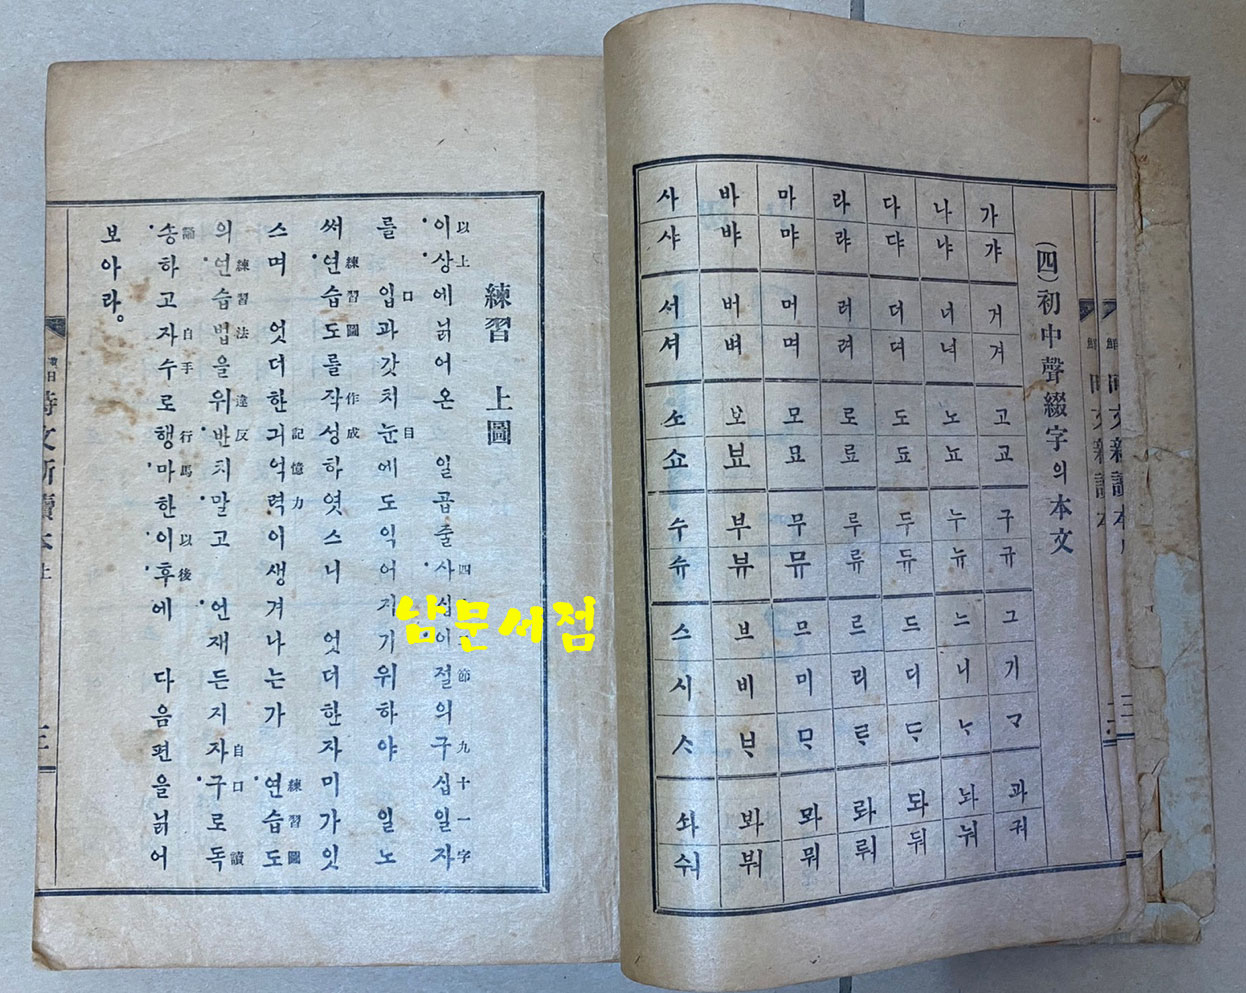 (四)初中聲綴字의本文
가 갸 거 겨 고 교 구 규 그 기 ᄀᆞ 과 궈
나 냐 너 녀 노 뇨 누 뉴 느 니 ᄂᆞ 놔 눠
다 댜 더 뎌 도 됴 두 듀 드 디 ᄃᆞ 돠 둬
라 랴 러 려 로 료 루 류 르 리 ᄅᆞ 롸 뤄
마 먀 머 며 모 묘 무 뮤 므 미 ᄆᆞ 뫄 뭐
바 뱌 버 벼 보 뵤 부 뷰 브 비 ᄇᆞ 봐 붜
사 샤 서 셔 소 쇼 수 슈 스 시 ᄉᆞ 솨 숴
練習 上圖
以上 四 節 九十一字
이상에닑어온 일곱줄사십이절의구십일자
口 目
를 입과갓치눈에도익어지기위하야 일노
練習圖 作成
써연습도를작성하엿스니 엇더한자미가잇
記憶力 練習圖
스며 엇더한긔억력이생겨나는가 연습도
練習法 違反 自口 讀
의연습법을위반치말고 언재든지자구로독
誦 自手 行馬 以後
송하고자수로행마한이후에 다음편을닑어
보아라。
남문서점